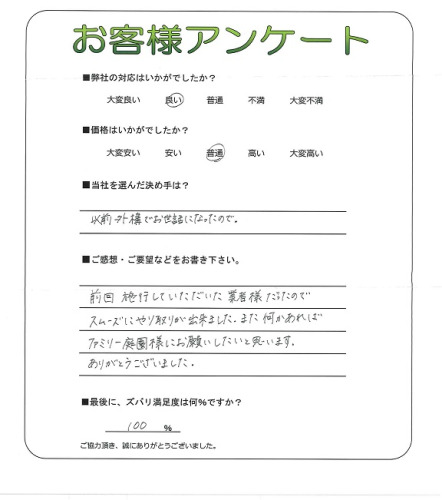 お客様アンケート
■弊社の対応はいかがでしたか？
大変良い 良い 普通 不満 大変不満
■価格はいかがでしたか？
大変安い 安い 普通 高い 大変高い
■当社を選んだ決め手は？
以前外構でお世話になったので。
■ご感想・ご要望などをお書き下さい。
前回 施行していただいた 業者様 だったので
スムーズにやり取りが出来ました。また 何かあれば
ファミリー庭園様にお願いしたいと思います。
ありがとうございました。
■最後に、ズバリ満足度は何％ですか？
100 ％
ご協力頂き、誠にありがとうございました。